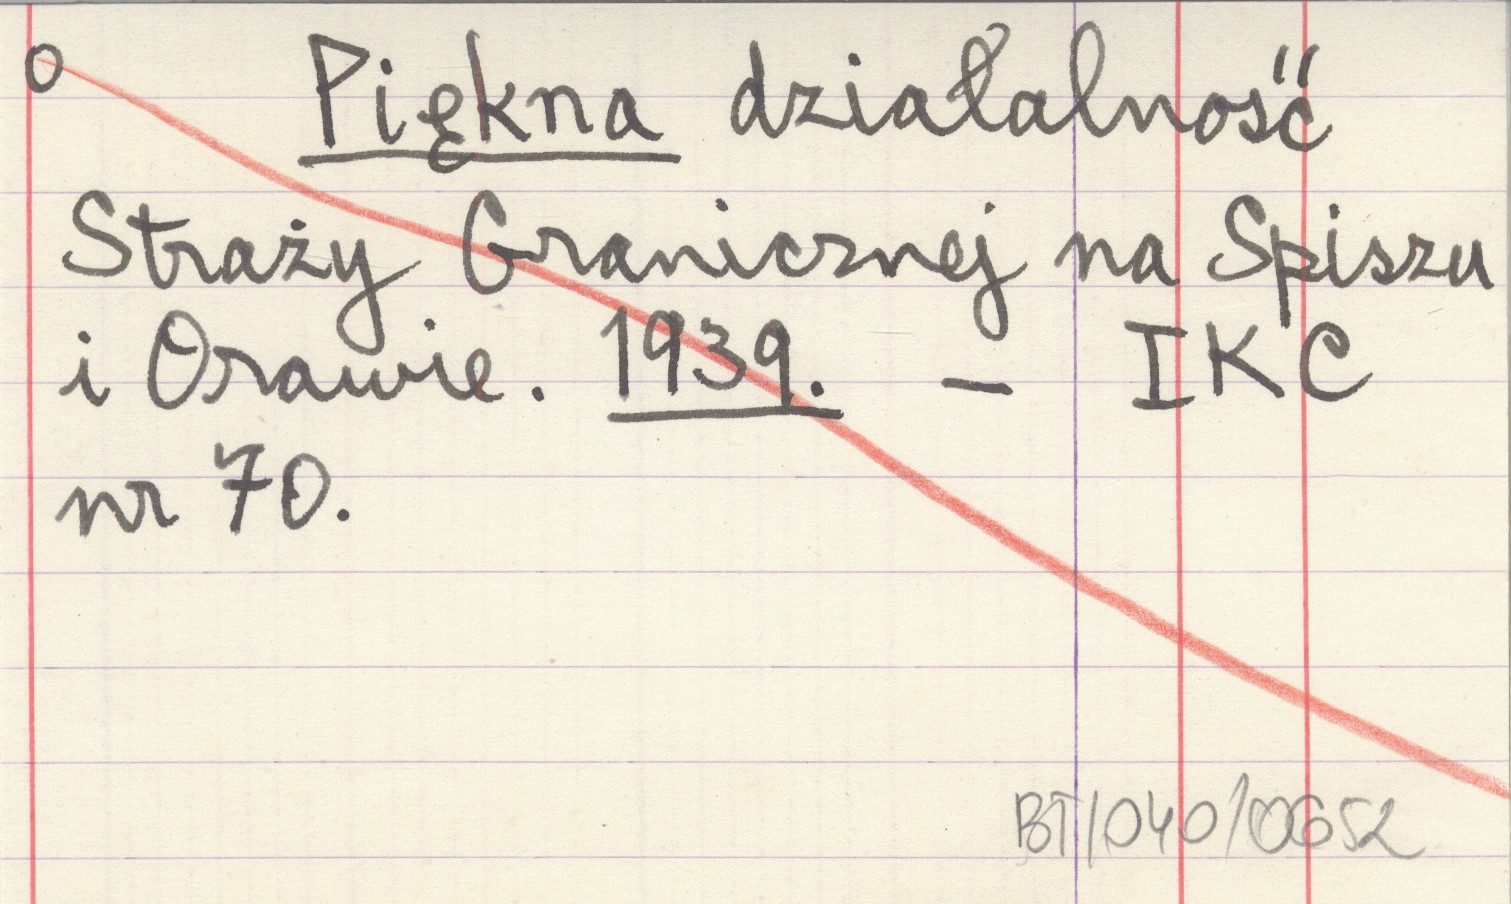 O Piękna działalność
Straży Granicznej na Spiszu
i Orawie. 1939. — IKC
nr 70.
BT/040/0652